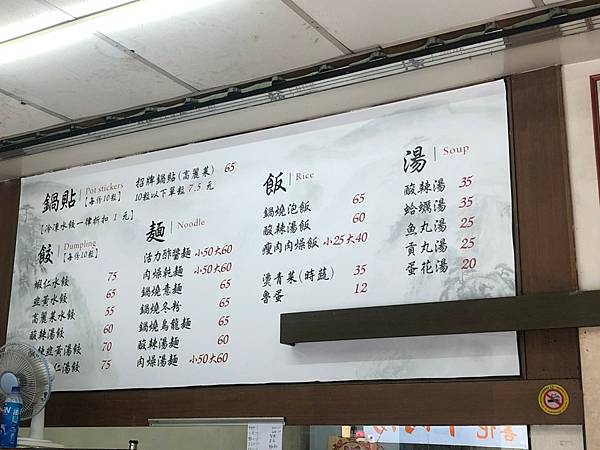 鍋貼 Pot stickers
【每份10粒】
招牌鍋貼(高麗菜) 65
10粒以下單粒 7.5 元
【冷凍水餃一律折扣 1 元】
餃 Dumpling
【每份10粒】
蝦仁水餃 75
韭黃水餃 65
高麗菜水餃 55
酸辣湯餃 60
韭黃湯餃 70
仁湯餃 75
麵 Noodle
活力酢醬麵 小50大60
肉燥乾麵 小50大60
鍋燒意麵 65
鍋燒冬粉 65
鍋燒烏龍麵 65
酸辣湯麵 60
肉燥湯麵 小50大60
飯 Rice
鍋燒泡飯 65
酸辣湯飯 60
瘦肉肉燥飯 小25大40
燙青菜(時蔬) 35
魯蛋 12
湯 Soup
酸辣湯 35
蛤蠣湯 35
魚丸湯 25
貢丸湯 25
蛋花湯 20